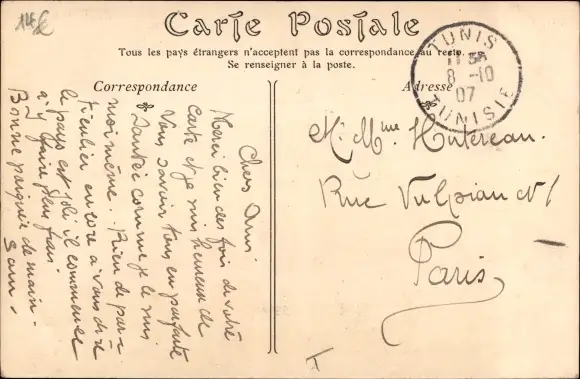 14€
Carte Postale
Tous les pays étrangers n'acceptent pas la correspondance au recto.
Se renseigner à la poste.
Correspondance
Adresse
TUNIS
8 -10
07
TUNISIE
Chers Amis
Merci bien des fois de votre
carte et je suis heureux de
vous savoir tous en parfaite
santée comme je le suis
moi même. Rien de par-
ticulier encore a vous dire
le pays est joli il commence
a y faire plus frais
Bonne poignée de main.
M. Mme Hutereau.
Rue Vulpian N 1
Paris